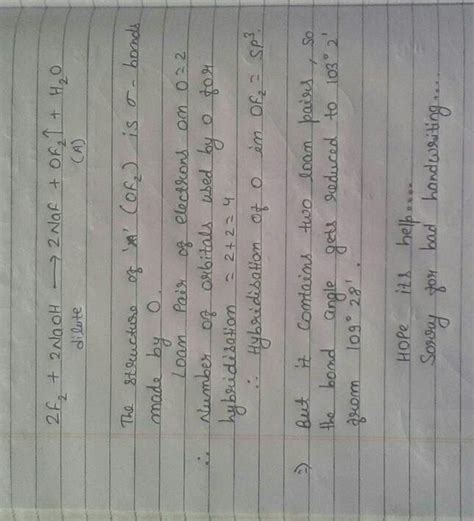 2F₂ + 2NaOH ⟶ 2NaF + OF₂↑ + H₂O
dilute (A)
The structure of 'A' (OF₂) is σ - bonds
made by O.
Loan Pair of electrons on O = 2
∴ Number of orbitals used by O for
hybridisation = 2+2 = 4
∴ Hybridisation of O in OF₂ = sp³.
⇒ But it contains two loan pairs, so
the bond angle gets reduced to 103° 2'
from 109° 28'.
HOPE its help....
Sorry for bad handwriting....